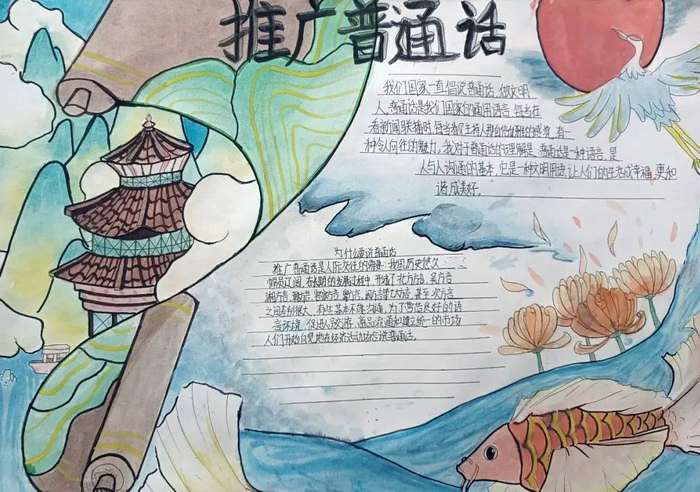 推广普通话
我们国家一直倡说普通话,做文明
人,普通话是我们国家的通用语言,每当在
看新闻联播时,每当看主持人那
有一
种令人向往的魅力,我对于普通话的理解是,普通话是一种语言,是
人与人沟通的基本,它是一种文明用语,让人们的生活成幸福,更和
谐成美好。
为什么要说普通话
推广普通话是人际交往的需要,我国历史悠久
幅员辽阔,在长期的发展过程中,形成了北方方言,吴方言
湘方言,赣方言,客家方言,粤方言,闽方言等七大方言,甚至
之间差别很大,有些基本不能沟通,为了营造良好的语
言环境,促进人员交流,商品流通和建立统一的市场
人们开始自觉地在经济活动场合说普通话。